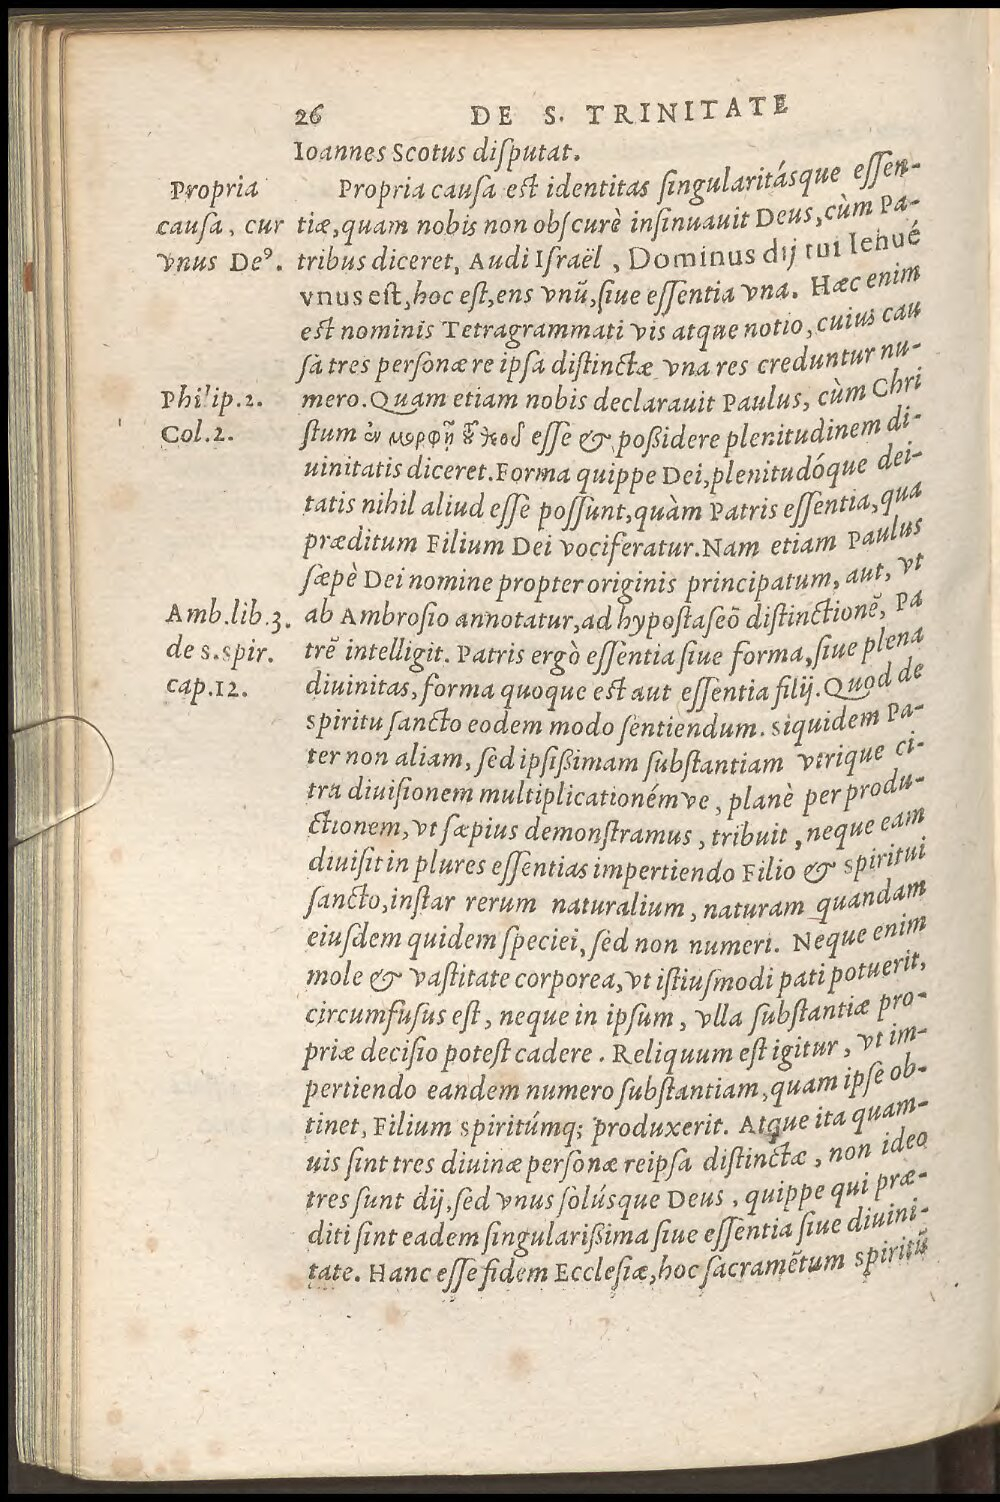 26 DE S. TRINITATE
Ioannes Scotus disputat.
Propria causa est identitas singularitásque essen-
tiæ, quam nobis non obscurè insinuauit Deus, cùm Pa-
tribus diceret, Audi Israël, Dominus dij tui Iehué
vnus est, hoc est, ens vnũ, siue essentia vna. Hæc enim
est nominis Tetragrammati vis atque notio, cuius cau
sa tres personæ re ipsa distinctæ vna res creduntur nu-
mero. Quam etiam nobis declarauit Paulus, cùm Chri
stum ἐν μορφῇ τ͂ θεοῦ esse & poßidere plenitudinem di-
uinitatis diceret. Forma quippe Dei, plenitudóque dei-
tatis nihil aliud esse possunt, quàm Patris essentia, qua
præditum Filium Dei vociferatur. Nam etiam Paulus
sæpè Dei nomine propter originis principatum, aut, vt
ab Ambrosio annotatur, ad hypostaseõ distinctionẽ, Pa
trẽ intelligit. Patris ergò essentia siue forma, siue plena
diuinitas, forma quoque est aut essentia filij. Quod de
spiritu sancto eodem modo sentiendum. siquidem Pa-
ter non aliam, sed ipsißimam substantiam vtrique ci-
tra diuisionem multiplicationémve, planè per produ-
ctionem, vt sæpius demonstramus, tribuit, neque eam
diuisit in plures essentias impertiendo Filio & spiritui
sancto, instar rerum naturalium, naturam quandam
eiusdem quidem speciei, sed non numeri. Neque enim
mole & vastitate corporea, vt istiusmodi pati potuerit,
circumfusus est, neque in ipsum, vlla substantiæ pro-
priæ decisio potest cadere. Reliquum est igitur, vt im-
pertiendo eandem numero substantiam, quam ipse ob-
tinet, Filium spiritúmq; produxerit. Atque ita quam-
uis sint tres diuinæ personæ reipsa distinctæ, non ideo
tres sunt dij, sed vnus solúsque Deus, quippe qui præ-
diti sint eadem singularißima siue essentia siue diuini-
tate. Hanc esse fidem Ecclesiæ, hoc sacramẽtum spiritũ
Propria
causa, cur
vnus Deꝰ.
Philip.2.
Col.2.
Amb.lib.3.
de s.spir.
cap.12.